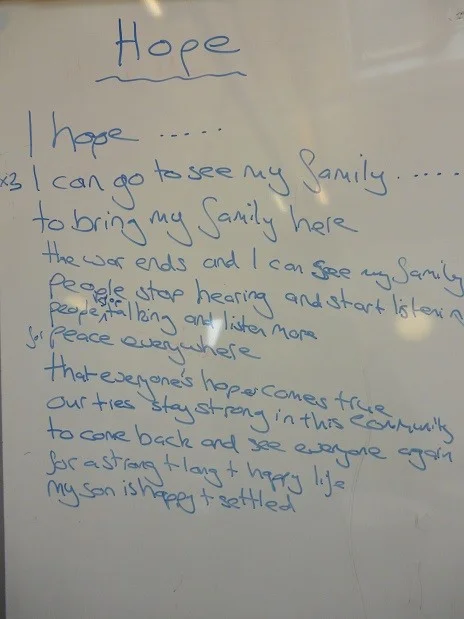 Hope
I hope .....
x3 I can go to see my family.....
to bring my family here
the war ends and I can see my family
people stop hearing and start listenin
people stop talking and listen more
for peace everywhere
that everyone's hope comes true
our ties stay strong in this community
to come back and see everyone again
for a strong + long + happy life
my son is happy + settled